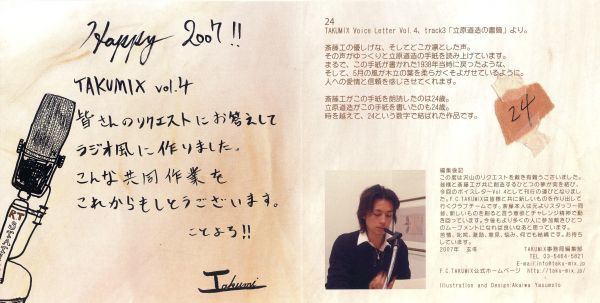 Happy 2007!!
TAKUMIX vol.4
皆さんのリクエストにお答えして
ラジオ風に作りました。
こんな共同作業を
これからもしとうございます。
ことよろ!!
Takumi
RT
24
TAKUMIX Voice Letter Vol.4、track3「立原道造の書簡」より。
斎藤工の優しげな、そしてどこか凛とした声。
その声がゆっくりと立原道造の手紙を読み上げています。
まるで、この手紙が書かれた1938年当時に戻ったような、
そして、5月の風が木立の葉を柔らかくそよがせているように。
人への愛情と信頼を感じさせてくれます。
斎藤工がこの手紙を朗読したのは24歳。
立原道造がこの手紙を書いたのも24歳。
時を越えて、24という数字で結ばれた作品です。
24
編集後記
この度は沢山のリクエストを戴き有難うございました。
皆様と斎藤工が共に創造するひとつの夢が実を結び、
今回のボイスレターVol.4として刊行の運びとなりまし
た。F.C.TAKUMIXは皆様と共に新しいものを作り出して
行くクラブチームです。斎藤本人は元よりスタッフ一同
皆、新しいものを創ると言う意欲とチャレンジ精神で動
き回っています。今後もより多くの人に参加戴きひとつ
のムーブメントになれば良いなあと思っています。
苦情、叱咤、激励、意見、悩み、何でも結構です。お待ち
しています。
2007年 玄冬 TAKUMIX事務局編集部
TEL 03-5464-5821
E-mail:info@taku-mix.jp
F.C.TAKUMIX公式ホームページ http://taku-mix.jp/
Illustration and Design:Akaiwa Yasumoto